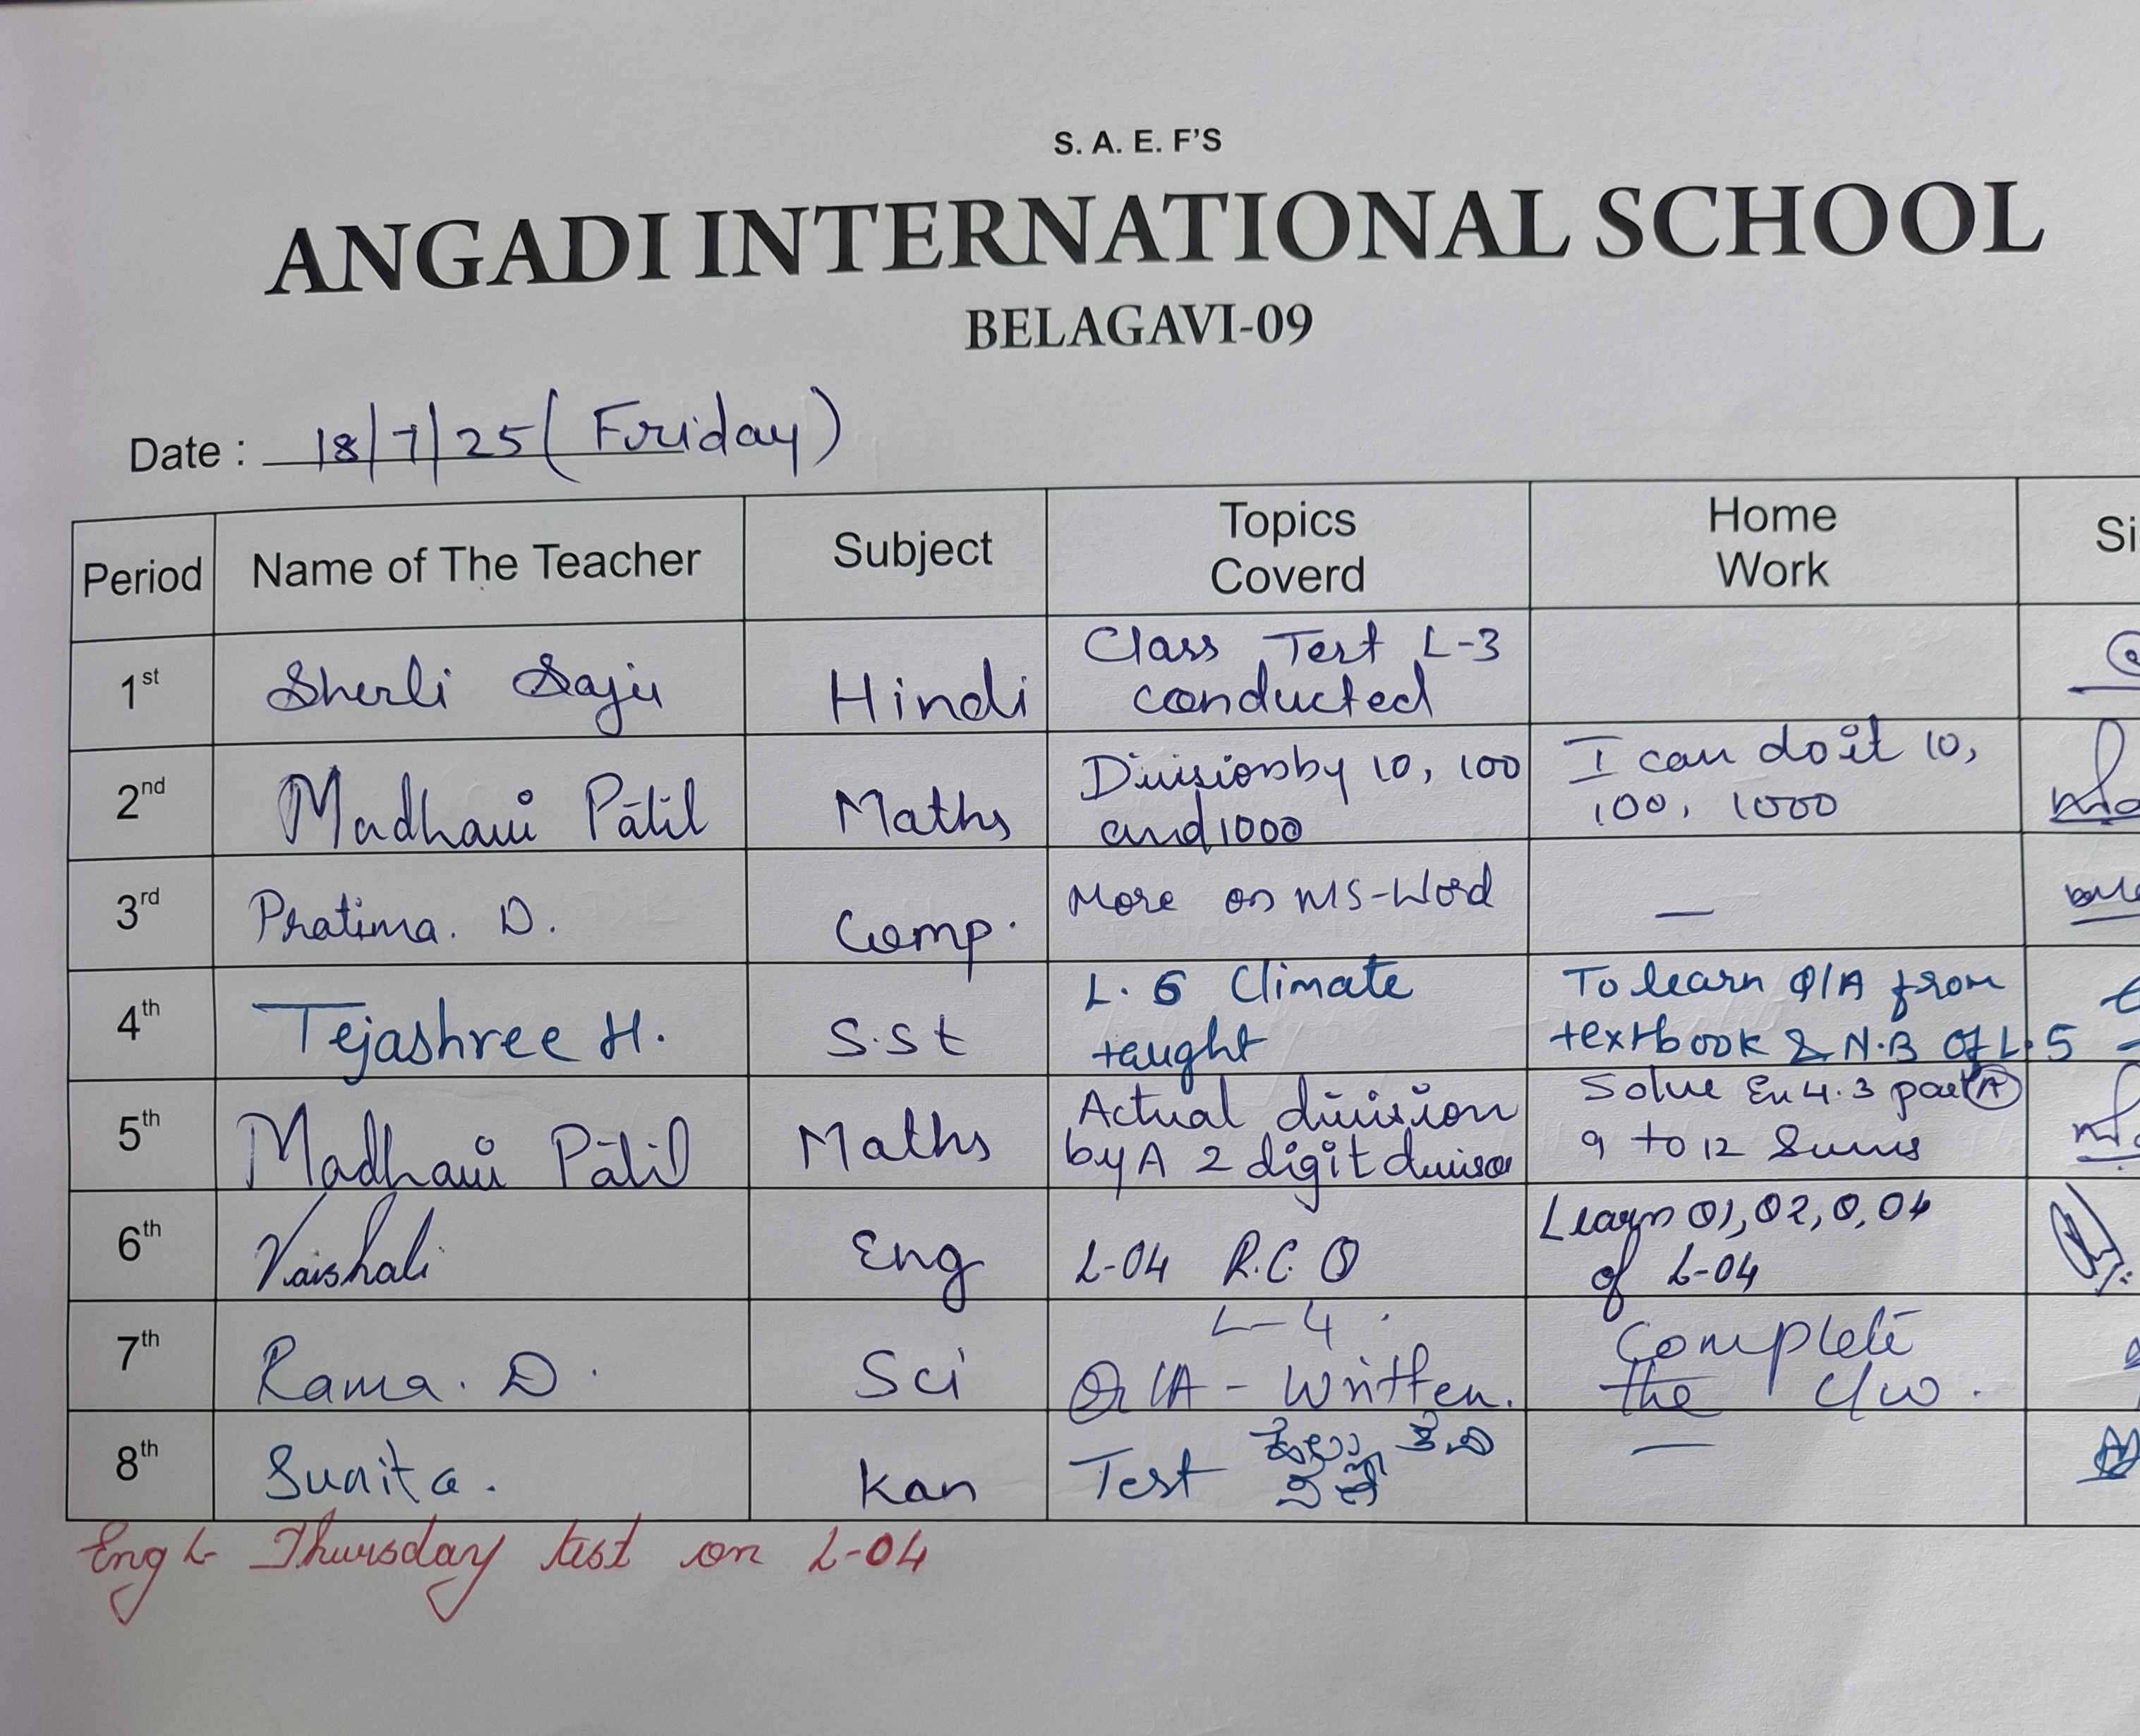 S. A. E. F'S
ANGADI INTERNATIONAL SCHOOL
BELAGAVI-09
Date : 18/7/25 (Friday)
Period Name of The Teacher Subject Topics Coverd Home Work Si
1st Sherli Saju Hindi Class Test L-3 conducted
2nd Madhavi Patil Maths Division by 10, 100 and 1000 I can do it 10, 100, 1000
3rd Pratima. D. Comp. More on MS-Word —
4th Tejashree H. S.St L. 6 Climate taught To learn Q/A from textbook & N.B Of L.5
5th Madhavi Patil Maths Actual division by A 2 digit divisor Solve Ex 4.3 part A 9 to 12 Sums
6th Vaishali Eng L-04 R.C. Q Learn Q1, Q2, Q, Q4 of L-04
7th Rama. D. Sci L-4. Q/A - Written. Complete the C/W.
8th Sunita. Kan Test —
Eng L- Thursday test on L-04